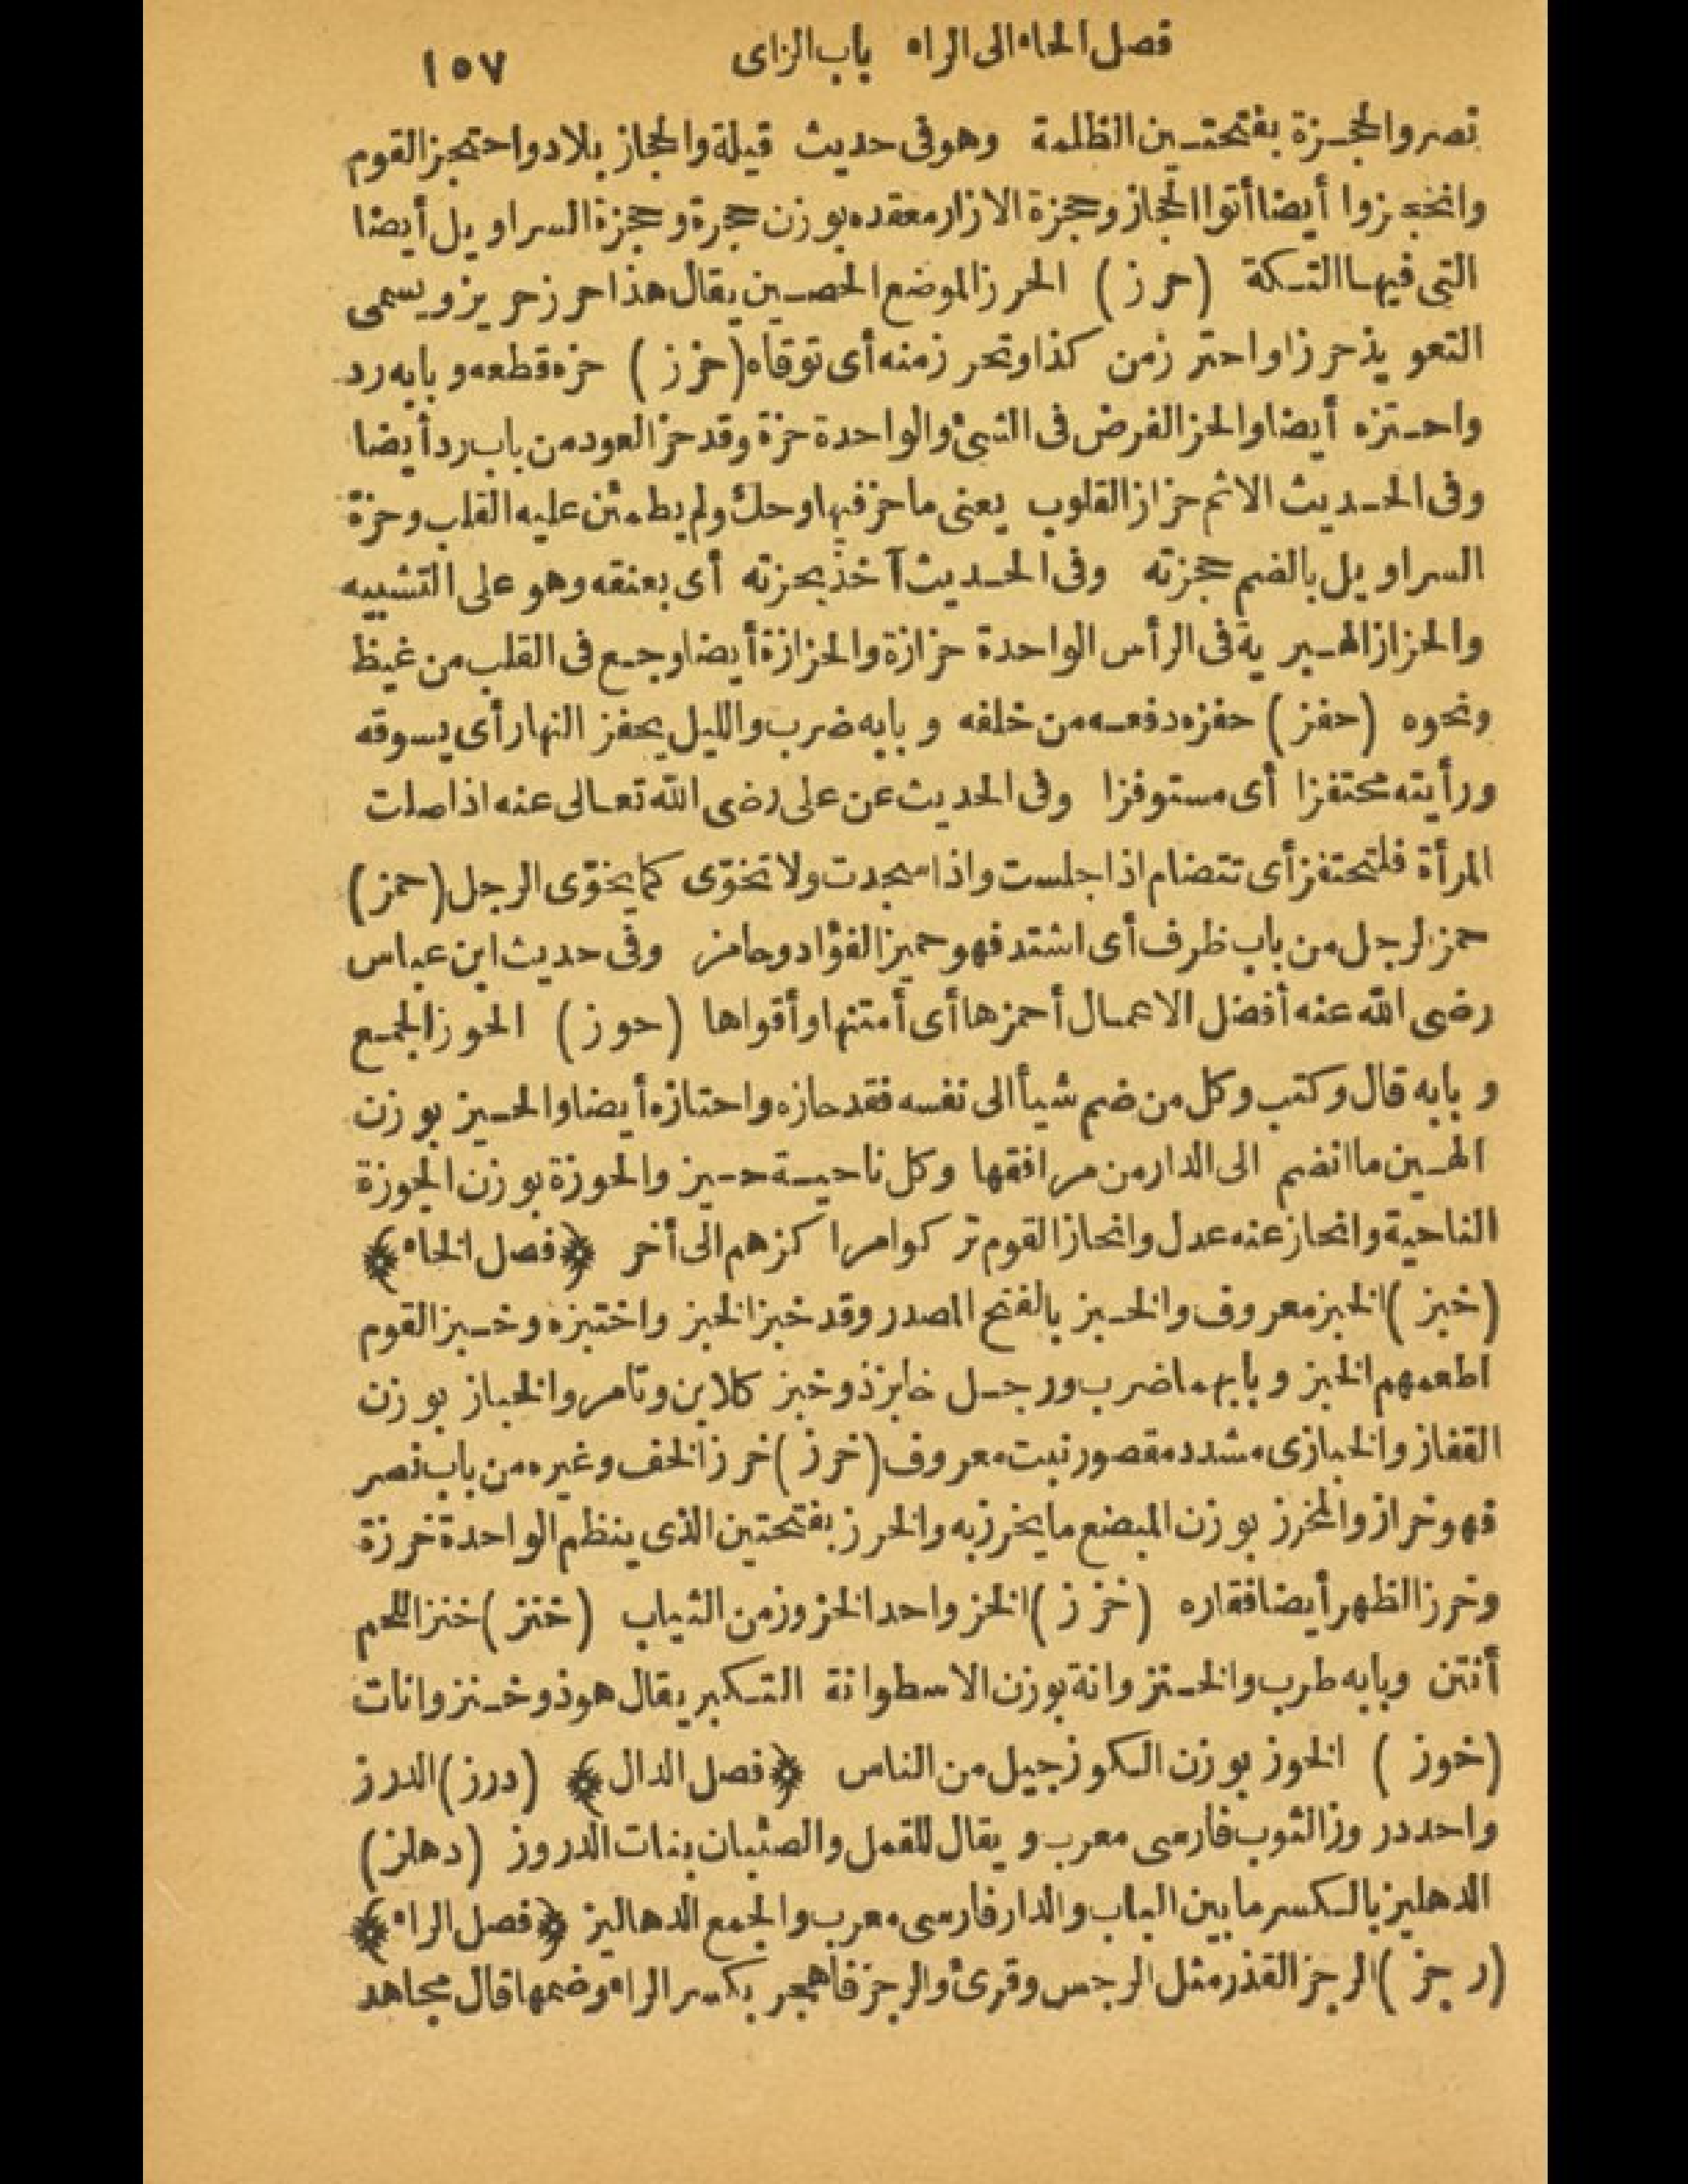 فصل الحاء الى الراء باب الزاى ١٥٧
نصر والحجزة بفتحتين الظلمة وهو فى حديث قيلة والحجاز بلاد واحتجز القوم
وانحجزوا أيضا أتوا الحجاز وحجزة الازار معقده بوزن حجرة وحجزة السراويل أيضا
التى فيها التكة (حرز) الحرز الموضع الحصين يقال هذا حرز حريز ويسمى
التعويذ حرزا واحترز من كذا وتحرز منه أى توقاه (حزز) حزه قطعه وبابه رد
واحتزه أيضا والحز الفرض فى الشىء والواحدة حزة وقد حز العود من باب رد أيضا
وفى الحديث الاثم حزاز القلوب يعنى ما حز فيها وحك ولم يطمئن عليه القلب وحزة
السراويل بالضم حجزته وفى الحديث آخذ بحزته أى بعنقه وهو على التشبيه
والحزاز الهبرية فى الرأس الواحدة حزازة والحزازة أيضا وجع فى القلب من غيظ
ونحوه (حفز) حفزه دفعه من خلفه وبابه ضرب والليل يحفز النهار أى يسوقه
ورأيته محتفزا أى مستوفزا وفى الحديث عن على رضى الله تعالى عنه اذا صلت
المرأة فلتحتفز أى تتضام اذا جلست واذا سجدت ولا تخوّى كما يخوّى الرجل (حمز)
حمز الرجل من باب ظرف أى اشتد فهو حميز الفؤاد وحامز وفى حديث ابن عباس
رضى الله عنه أفضل الاعمال أحمزها أى أمتنها وأقواها (حوز) الحوز الجمع
وبابه قال وكتب وكل من ضم شيأ الى نفسه فقد حازه واحتازه أيضا والحيز بوزن
الهين ما انضم الى الدار من مرافقها وكل ناحية حيز والحوزة بوزن الجوزة
الناحية وانحاز عنه عدل وانحاز القوم تركوا مراكزهم الى أخر ﴿فصل الخاء﴾
(خبز) الخبز معروف والخبز بالفتح المصدر وقد خبز الخبز واختبزه وخبز القوم
اطعمهم الخبز وبابهما ضرب ورجل خابز ذو خبز كلابن وتامر والخباز بوزن
القفاز والخبازى مشدد مقصور نبت معروف (خرز) خرز الخف وغيره من باب نصر
فهو خراز والمخرز بوزن المبضع ما يخرز به والخرز بفتحتين الذى ينظم الواحدة خرزة
وخرز الظهر أيضا فقاره (خزز) الخز واحد الخزوز من الثياب (خنز) خنز اللحم
أنتن وبابه طرب والخنزوانة بوزن الاسطوانة التكبر يقال هو ذو خنزوانات
(خوز) الخوز بوزن الكوز جيل من الناس ﴿فصل الدال﴾ (درز) الدرز
واحد دروز الثوب فارسى معرب ويقال للقمل والصئبان بنات الدروز (دهلز)
الدهليز بالكسر ما بين الباب والدار فارسى معرب والجمع الدهاليز ﴿فصل الراء﴾
(رجز) الرجز القذر مثل الرجس وقرئ والرجز فاهجر بكسر الراء وضمها قال مجاهد